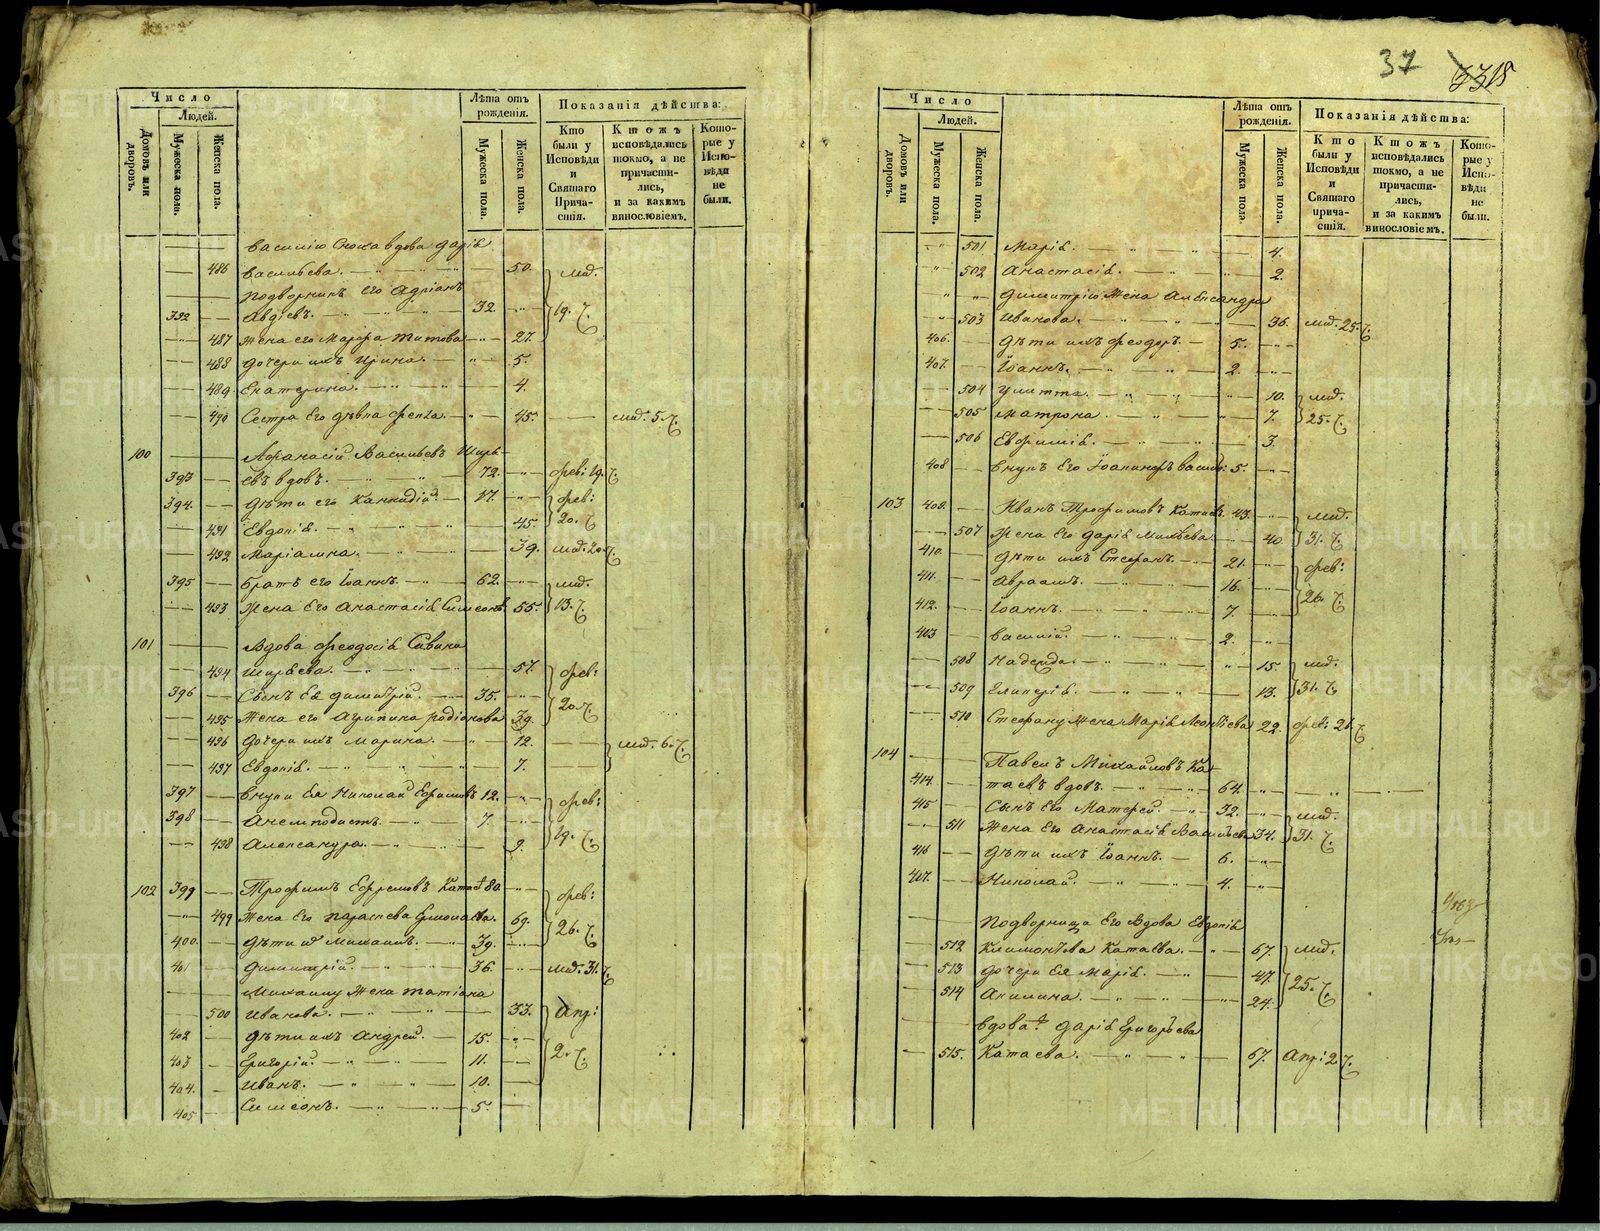 37
3318
Число
Людей.
Домовъ или дворовъ.
Мужеска пола.
Женска пола.
Лѣта отъ рожденія.
Мужеска пола.
Женска пола.
Показанія дѣйства:
Кто были у Исповѣди и Святаго Прича-стія.
Ктожъ исповѣдались токмо, а не причасти-лись, и за какимъ винословіемъ.
Кото-рые у Испо-вѣди не были.
вдова Дарія
486 Васильева. 50. мар.
Подворникъ его Адріанъ
392 Авдіевъ. 32. 19.
487 Жена его Марфа Титова 27.
488 Дочери ихъ Ирина. 5.
489 Екатерина. 4.
490 Сестра его дѣвка 45. мар. 5.
100 Афанасій Васильевъ
393 евъ вдовъ. 72. фев: 19.
394. Дѣти его 17. фев:
491 Евдокія. 45. 20.
492 Маріамна. 39. мар. 20.
395 Братъ его Іоаннъ. 62. мар.
493 Жена его Анастасія Симеонов 55. 13.
101 Вдова Феодосія Савина
494 Ширяева. 57. фев:
396 Сынъ ея Димитрій. 35. 20.
495 Жена его Агрипина Родіонова 39.
496 Дочери ихъ Марина. 12. мар. 6.
497 Евдокія. 7.
397 Внуки ея Николай Ефимовъ 12. фев:
398 7. 19.
498 Александра. 9.
102 399 Трофимъ Ефремовъ Катаев 80. фев:
499 Жена его Параскева Ермолаева. 69. 26.
400. Дѣти Михаилъ. 39.
401 Димитрій. 36. мар. 31.
Михаилу жена Татіана
500 Иванова. 33. Апр:
402 Дѣти ихъ Андрей. 15. 2.
403 Григорій. 11.
404. Иванъ. 10.
405 Симеонъ. 5.
Число
Людей.
Домовъ или дворовъ.
Мужеска пола.
Женска пола.
Лѣта отъ рожденія.
Мужеска пола.
Женска пола.
Показанія дѣйства:
Кто были у Исповѣди и Святаго прича-стія.
Ктожъ исповѣдались токмо, а не причасти-лись, и за какимъ винословіемъ.
Кото-рые у Испо-вѣди не были.
501 Марія. 4.
502 Анастасія. 2.
Димитрію жена Александра
503 Иванова. 36. мар. 25.
406. Дѣти ихъ Феодоръ. 5.
407. Іоаннъ. 2.
504 Улитта. 10. мар.
505 Матрона. 7. 25.
506 Евфимія. 3.
408 Внукъ его 5.
103 409. Иванъ Трофимовъ Катаевъ. 43. мар.
507 Жена его Дарія 40. 31.
410. Дѣти ихъ Стефанъ. 21. фев:
411. Авраамъ. 16. 26.
412. Іоаннъ. 7.
413 Василій. 2.
508 Надежда. 15. мар.
509 Гликерія. 13. 31.
510 Стефану жена Марія Леонтіева 22. фев: 26.
104 Павелъ Михайловъ Ка-
414. таевъ вдовъ. 64.
415 Сынъ его Матфей. 32. мар.
511 Жена его Анастасія Васильева 34. 31.
416 Дѣти ихъ Іоаннъ. 6.
417. Николай. 4.
Подворница его вдова Евдокія
512 Климонтова Катаева. 67. мар.
513 Дочери ея Марія. 47. 25.
514 Акилина. 24.
Вдова Дарія Григорьева
515. Катаева. 67. Апр: 2.
METRIKI.GASO-URAL.RU